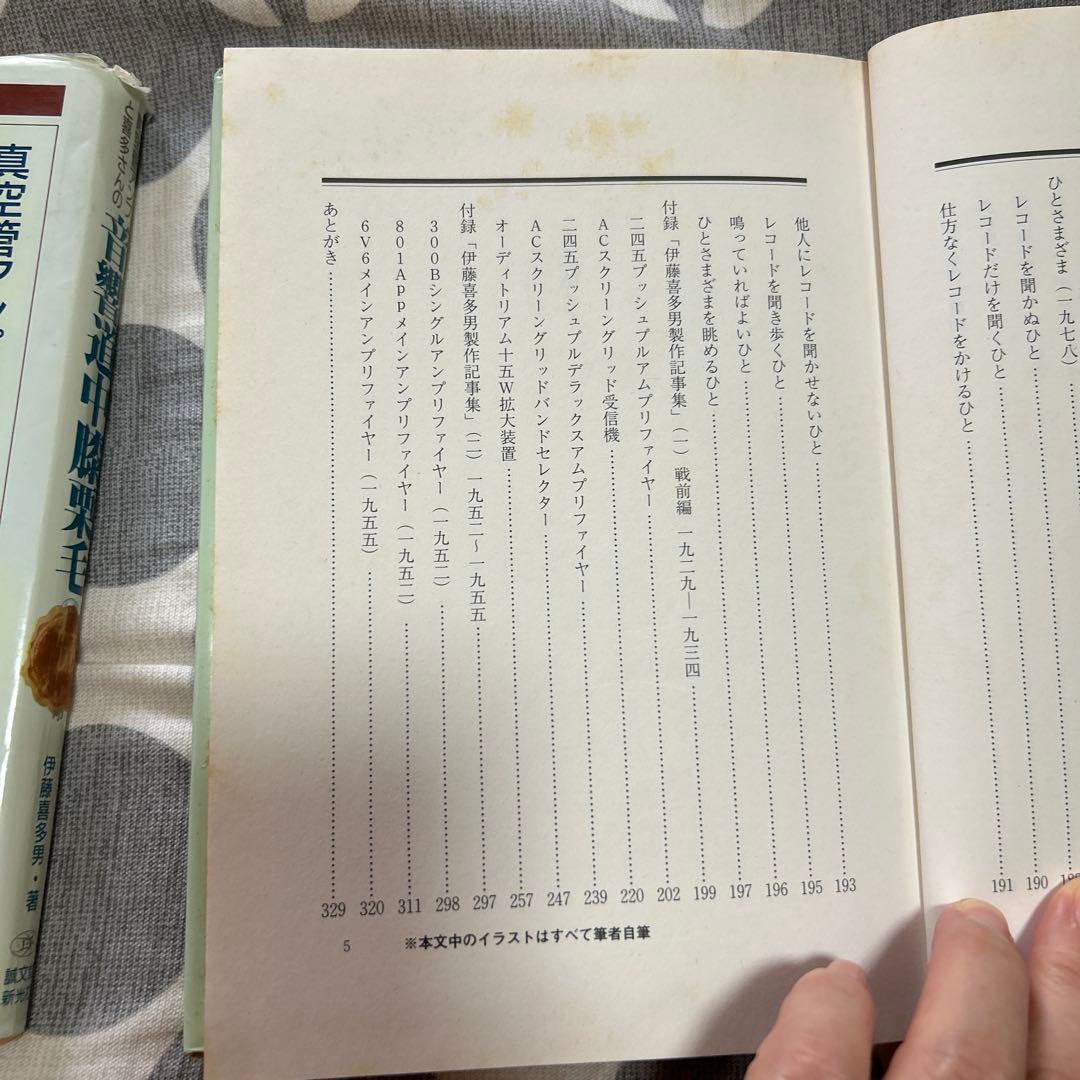 ひとさまざま（一九七八）
レコードを聞かぬひと
レコードだけを聞くひと……190
仕方なくレコードをかけるひと……191
他人にレコードを聞かせないひと……193
レコードを聞き歩くひと……195
鳴っていればよいひと……196
ひとさまざまを眺めるひと……197
付録「伊藤喜多男製作記事集」（一）戦前編 一九二九―一九三四……199
二四五プッシュプルアムプリファイヤー……202
ACスクリーングリッド受信機……220
二四五プッシュプルデラックスアムプリファイヤー……239
ACスクリーングリッドバンドセレクター……247
オーディトリアム十五W拡大装置……257
付録「伊藤喜多男製作記事集」（二）一九五二～一九五五……297
300Bシングルアンプリファイヤー（一九五二）……298
801Appメインアンプリファイヤー（一九五二）……311
6V6メインアンプリファイヤー（一九五五）……320
あとがき……329
5
※本文中のイラストはすべて筆者自筆
と喜多さんの
音響道中膝栗毛
伊藤喜多男・著
誠文
新光
真空管